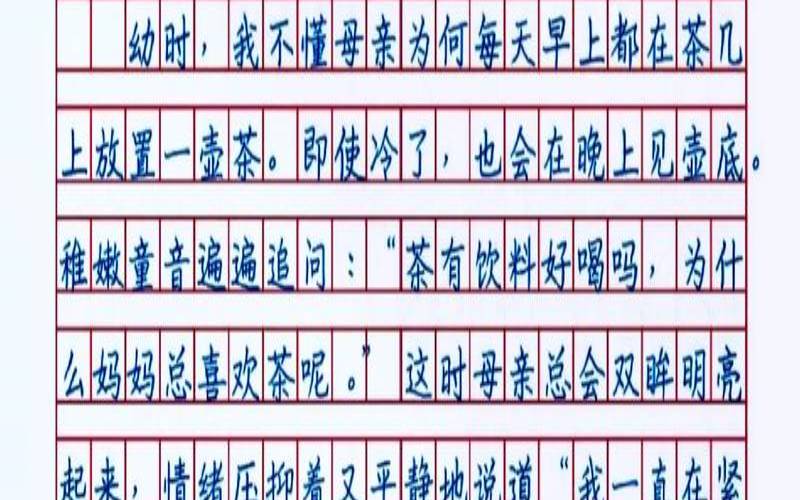 幼时，我不懂母亲为何每天早上都在茶几
上放置一壶茶。即使冷了，也会在晚上见壶底。
稚嫩童音遍遍追问：“茶有饮料好喝吗，为什
么妈妈总喜欢茶呢。”这时母亲总会双眸明亮
起来，情绪压抑着又平静地说道“我一直在紧